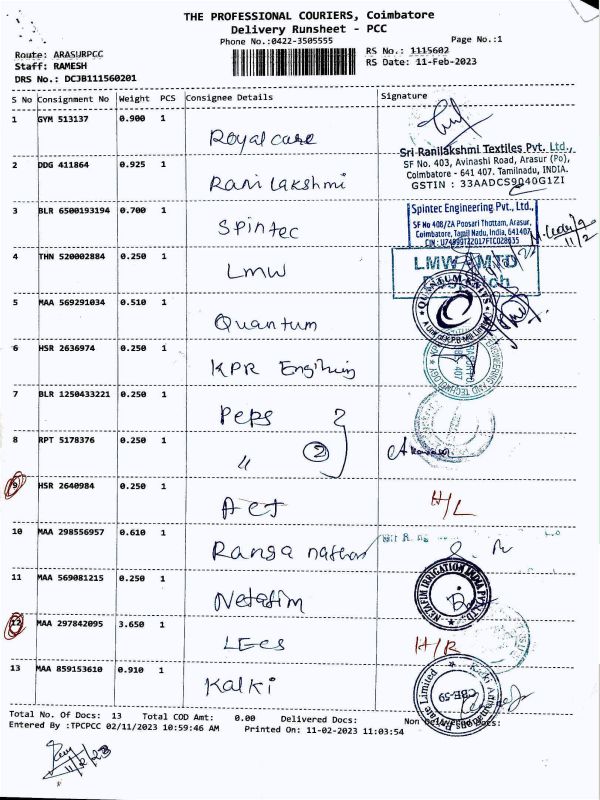 THE PROFESSIONAL COURIERS, Coimbatore
Delivery Runsheet - PCC
Phone No.:0422-3505555
Page No.:1
Route: ARASURPCC
RS No.: 1115602
Staff: RAMESH
RS Date: 11-Feb-2023
DRS No.: DCJB111560201
S No Consignment No Weight PCS Consignee Details Signature
1 GYM 513137 0.900 1 Royal care
Sri Ranilakshmi Textiles Pvt. Ltd.,
SF No. 403, Avinashi Road, Arasur (Po),
Coimbatore - 641 407. Tamilnadu, INDIA.
GSTIN : 33AADCS9040G1ZI
2 DDG 411864 0.925 1 Rani lakshmi
3 BLR 6500193194 0.700 1 Spintec
Spintec Engineering Pvt., Ltd.,
SF No 408/2A Poosari Thottam, Arasur,
Coimbatore, Tamil Nadu, India, 641407
4 THN 520002884 0.250 1 LMW
LMW AMTD
5 MAA 569291034 0.510 1 Quantum
QUANTUM KNITS
6 HSR 2636974 0.250 1 KPR
7 BLR 1250433221 0.250 1 Peps
8 RPT 5178376 0.250 1 " 2
9 HSR 2640984 0.250 1 H/L
10 MAA 298556957 0.610 1 Ranga nathan
11 MAA 569081215 0.250 1 Netafim
NETAFIM IRRIGATION INDIA PVT LTD
12 MAA 297842095 3.650 1 H/R
13 MAA 859153610 0.910 1 Kalki
CBE-59
Total No. Of Docs: 13 Total COD Amt: 0.00 Delivered Docs:
Entered By :TPCPCC 02/11/2023 10:59:46 AM Printed On: 11-02-2023 11:03:54
11/2/23